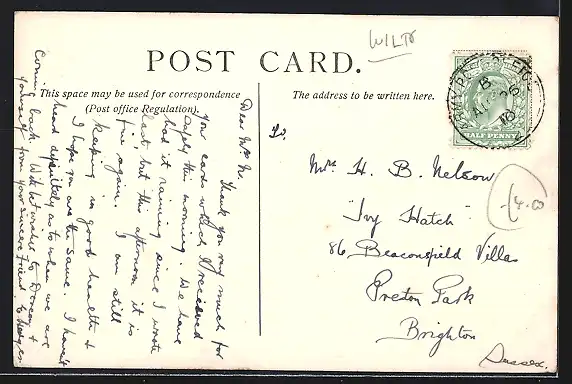 WILTS
POST CARD.
This space may be used for correspondence
(Post office Regulation).
The address to be written here.
HALF PENNY
AU 26
10
To,
Mrs H. B. Nelson
"Ivy Hatch"
86, Beaconsfield Villas
Preston Park
Brighton
Sussex.
4.00
Dear Mr N.
Thank you very much for
your card which I received
safely this morning. We have
had it raining since I wrote
last, but this afternoon it is
fine again. I am still
keeping in good health &
I hope you are the same. I haven't
heard definitely as to when we are
coming back. With best wishes to Doreen &
yourself from your sincere friend E.